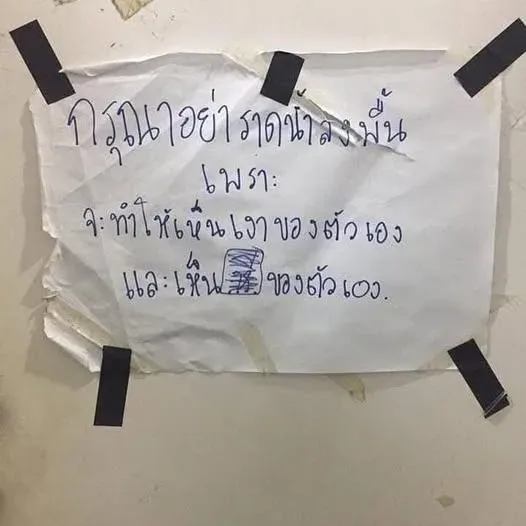 กรุณาอย่าราดน้ำลงพื้น
เพราะ
จะทำให้เห็นเงาของตัวเอง
และเห็นของตัวเอง.